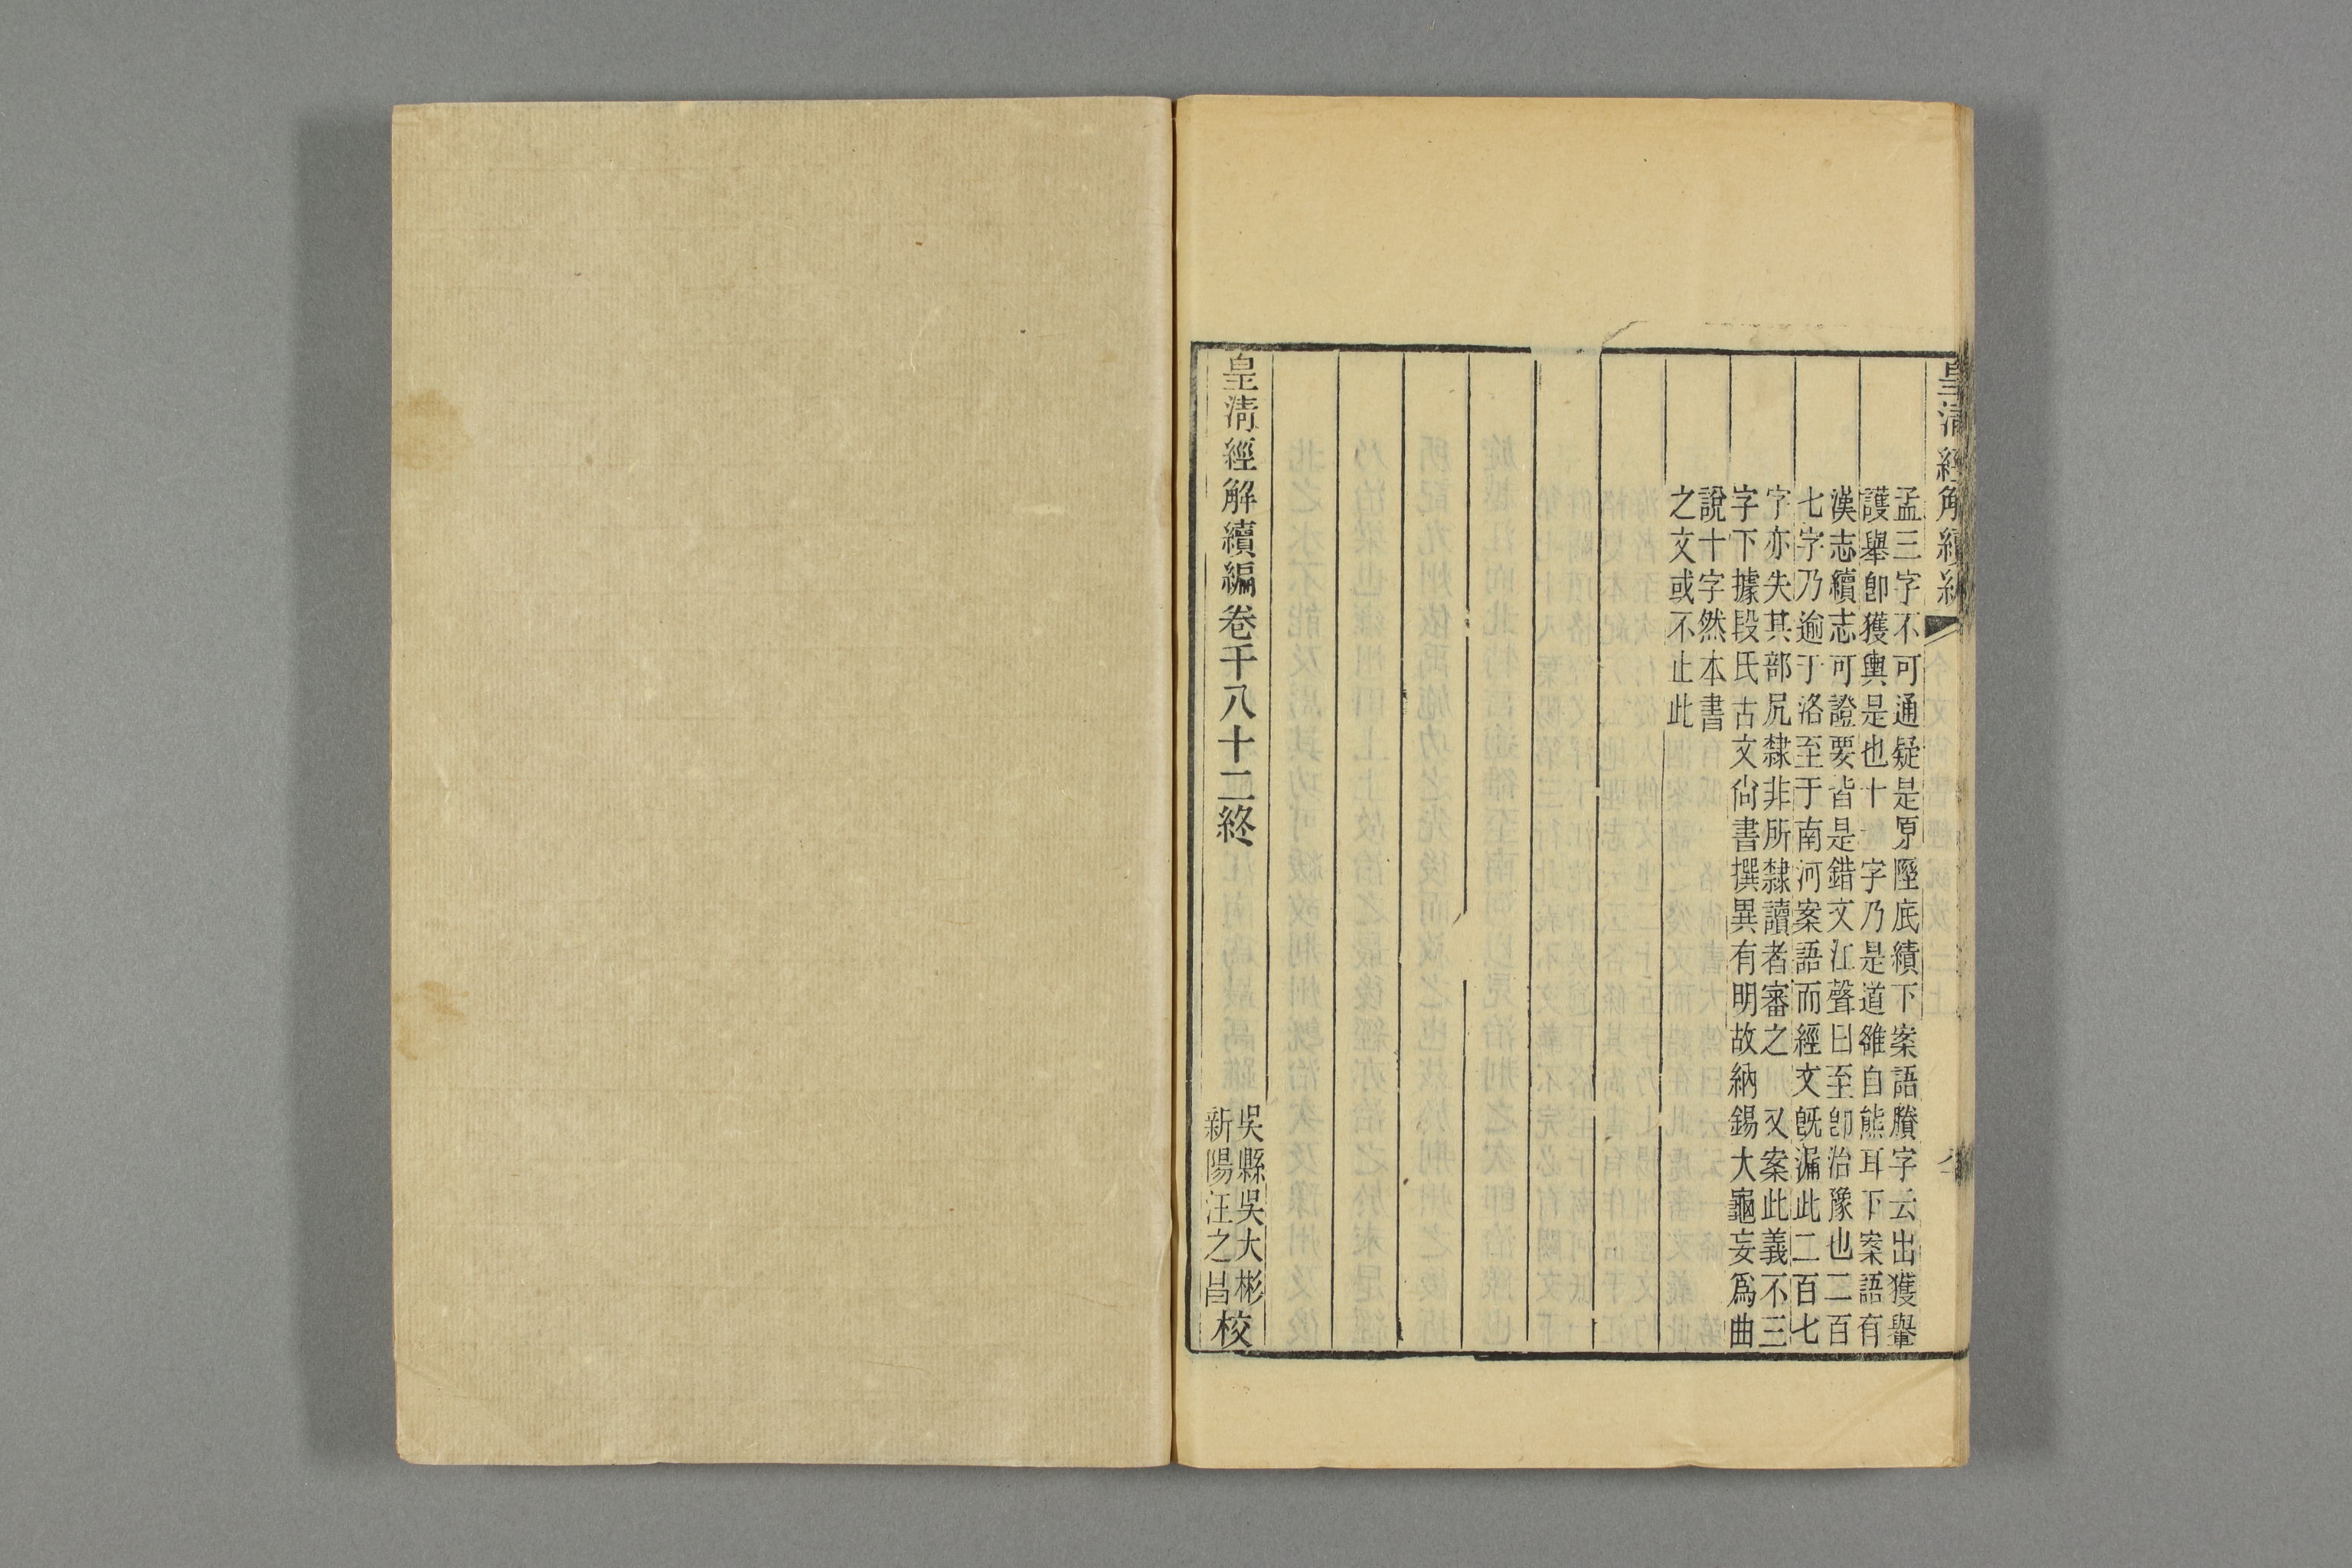 皇清經解續編
孟三字不可通疑是原隰底績下案語賸字云出獲舉
護舉卽獲輿是也十一字乃是道雒自熊耳下案語有
漢志續志可證要皆是錯文江聲曰至卽治豫也二百
七字乃逾于洛至于南河案語而經文既漏此二百七
字亦失其部尻隸非所隸讀者審之 又案此義不三
字下據段氏古文尙書撰異有明故納錫大龜妄爲曲
說十字然本書
之文或不止此
皇淸經解續編卷千八十二終
吳縣吳大彬
新陽汪之昌校